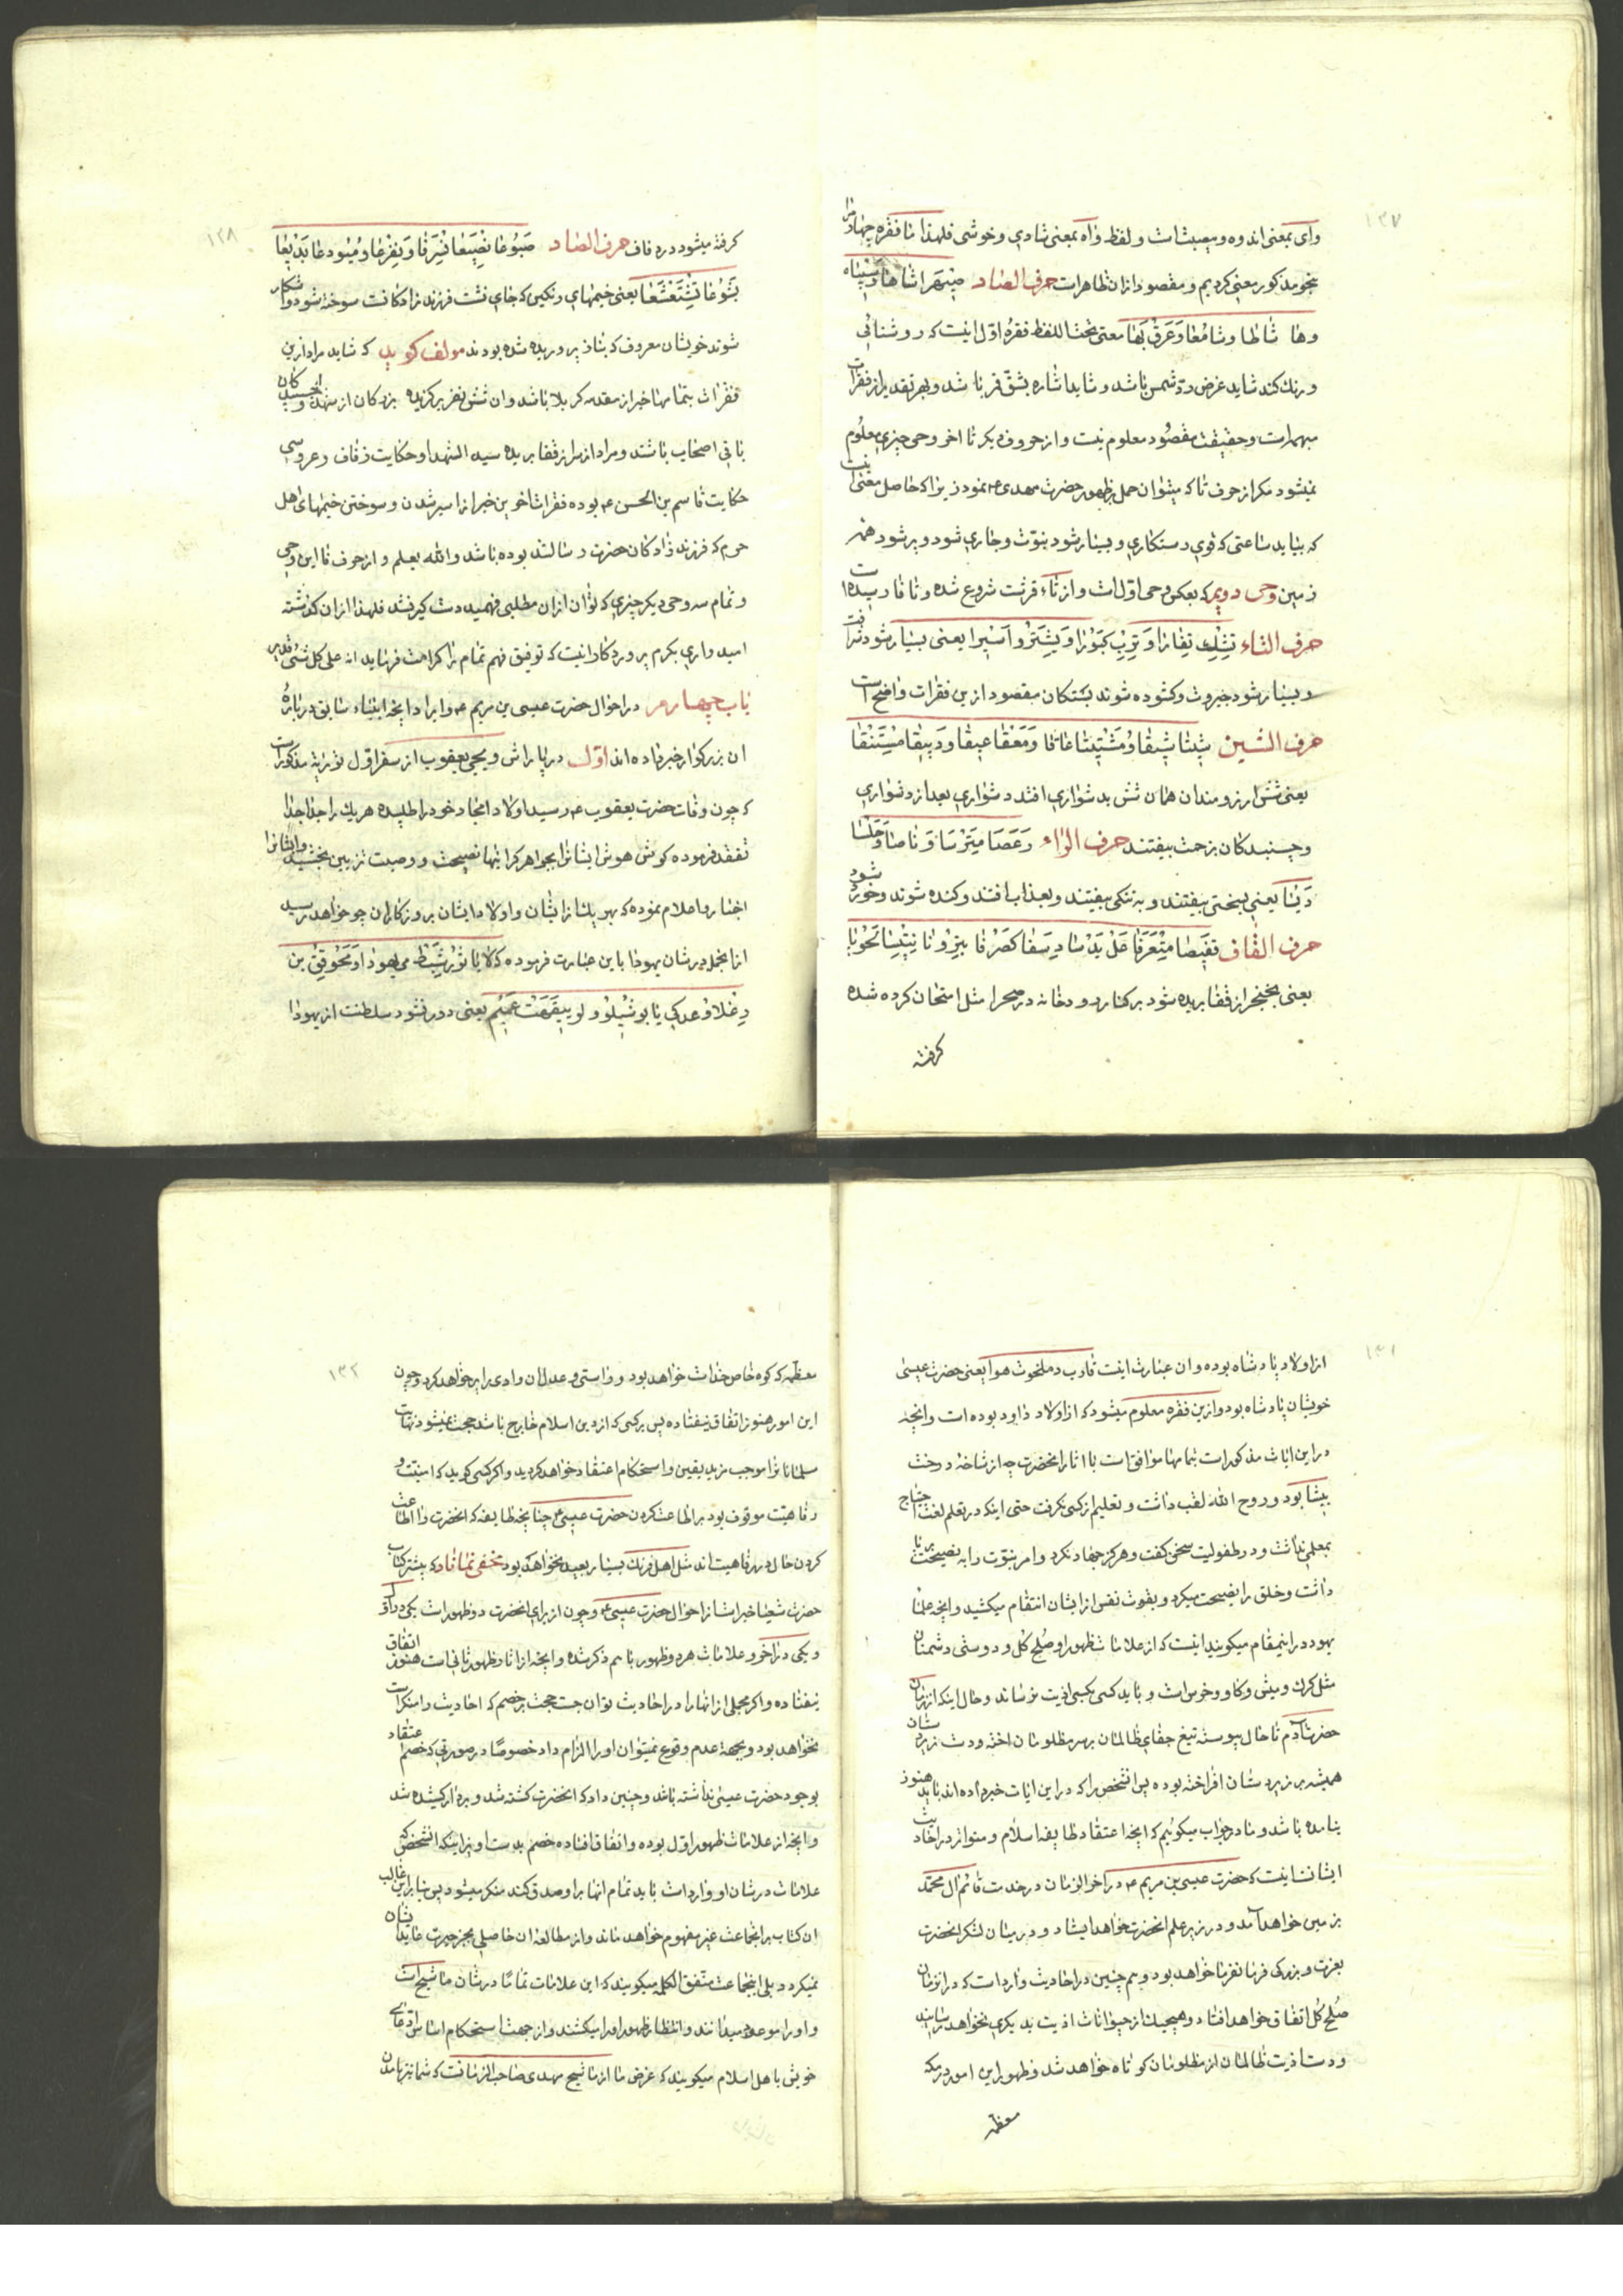 ۱۲۷
وای بمعنی اندوه و مصیبت است و لفظ واه بمعنی شادی و خوشی فلهذا ما فقره چهارم را
بنحو مذکور معنی کردیم و مقصود از ان ظاهر است حرف الصاد
وها شاطا وشامُعا وَعَرقٖ بَها معنی تحت اللفظ فقرهٔ اول اینست که روشنائی
و رنک کند شاید غرض ردّ شمس باشد و شاید اشاره بشقّ قمر باشد و بهر تقدیر از فقرات
مبهمه است و حقیقت مقصُود معلوم نیست و از حروف دیکر تا اخر وحی چیزی معلُوم
نمیشود مکر از حرف تا که میتوان حمل بظهور حضرت مهدی ع نمود زیرا که حاصل معنی انست
که بیاید ساعتی که قوی دستکاری و بسیار شود بنوّت و جاری شود و پر شود همه
زمین وحی دویم که بعکس وحی اول است و از تاء قرشت شروع شده و تا فا رسیده است
حرف التاء یعنی بسیار شود شرافت
و بسیار شود جبروت و کشوده شوند بستکان مقصود ازین فقرات واضح است
حرف الشین
یعنی شش ارزومندان همان شش بدشواری افتد دشواری بعد از دشواری
و چسبیدکان بزحمت بیفتند حرف الراء
یعنی بسختی بیفتند و به تنکی بیفیتند و بعذاب افتند و کنده شوند و خورد شود
حرف القاف
یعنی بخنجر از قفا بریده شود بر کنار رود و خانه در صحرا مثل امتحان کرده شده
کرفته
۱۲۸
کرفته میشود در زفاف حرف الصاد
یعنی خیمهای رنکین که جای نشست فرزند زادکانست سوخته شود و اشکار
شوند خویشان معروف که بناز پرورده شده بودند مولف کوید که شاید مراد ازین
فقرات بتمامها خبر از مقدمه کربلا باشد و ان شش نفر برکزیده بزرکان از شهدا و چسبیدکان
باقی اصحاب باشند و مراد از سر از قفا بریده سید الشهدا و حکایت زفاف و عروسی
حکایت قاسم بن الحسن ع بوده فقرات اخرین خبر از اسیر شدن و سوختن خیمهای اهل
حرم که فرزند زادکان حضرت رسالتند بوده باشد والله یعلم و از حرف فا این وحی
و تمام سه وحی دیکر چیزی که توان ازان مطلبی فهمید دست کیر نشد فلهذا ازان کذشته
امیدواری بکرم پروردکار انیست که توفیق فهم تمام را کرامت فرماید انه علی کل شئ قدیر
باب چهارم در احوال حضرت عیسی بن مریم ع و ایراد انچه انبیاء سابق در بارهٔ
ان بزرکوار خبر داده اند اوّل در پاراش ویحی یعقوب از سفر اول تورٰیة مذکور است
که چون وفات حضرت یعقوب ع رسید اولاد امجاد خود را طلبیده هریک را جدا جدا
تفقد فرموده کوش هوش ایشانرا بجواهر کرانبها نصیحت و وصیت تزیین بخشید و ایشانرا
اخبار و اعلام نموده که بهریک از ایشان و اولاد ایشان بروزکاران چه خواهد رسید
ازانجمله در شان یهودا باین عبارت فرموده
یعنی دور نشود سلطنت از یهودا
۱۳۱
از اولاد پادشاه بوده و ان عبارت اینست قارب دملخوت هوا یعنی حضرت عیسی
خویشان پادشاه بود و ازین فقره معلوم میشود که از اولاد داود بوده است و انچه
در این ایات مذکور است بتمامها موافق است با اثار انحضرت چه از شاخهٔ درخت
ییشا بود و روح الله لقب داشت و تعلیم از کسی نکرفت حتی اینکه در تعلم لغت احتیاج
بمعلمی نداشت و در طفولیت سخن کفت و هرکز جهاد نکرد و امر بنوّت را به نصیحت برپا
داشت و خلق را نصیحت میکرد و بقوت نفس از ایشان انتقام میکشید و انچه علماء
یهود در اینمقام میکویند اینست که از علامات ظهور او صُلح کُل و دوستی دشمنان
مثل کرک و میش و کاو و خرس است و باید کسی بکسی اذیت نرساند و حال اینکه از زمان
حضرت آدم تا حال پیوسته تیغ جفای ظالمان بر سر مظلومان اخته و دست زبردستان
همیشه بر زیردستان افراخته بوده پس انشخص را که در این ایات خبر داده اند باید هنوز
نیامده باشد و ما در جواب میکوئیم که انچه اعتقاد طایفه اسلام و متواتر در احادیث
ایشانست اینست که حضرت عیسی بن مریم ع در اخر الزمان در خدمت قائم ال محمّد
بزمین خواهد آمد و در زیر علم انحضرت خواهد ایستاد و در میان لشکر انحضرت
بعزت و بزرکی فرمانفرما خواهد بود و هم چنین در احادیث وارد است که در انزمان
صُلح کُل اتفاق خواهد افتاد و هیچیک از حیوانات اذیت بدیکری نخواهد رسانید
و دست اذیت ظالمان از مظلومان کوتاه خواهد شد و ظهور این امور در مکه
معظمه
۱۳۲
معظمه که کوه خاص خداست خواهد بود و راستی و عدل ان وادی را پر خواهد کرد و چون
این امور هنوز اتفاق نیفتاده پس بر کسی که از دین اسلام خارج باشد حجت نمیشود نهایت
مسلمانانرا موجب مزید یقین و استحکام اعتقاد خواهد کردید و اکر کسی کوید که امنیّت و
رفاهیّت موقوف بود بر اطاعت کردن حضرت عیسی ع چنانچه طایفه که انحضرت را اطاعت
کردن حال در رفاهیت اند مثل اهل فرنک بسیار بعید نخواهد بود مخفی نماناد که بیشتر کتاب
حضرت شعیا خبر است از احوال حضرت عیسی ع و چون از برای انحضرت دو ظهور است یکی در اوّل
و یکی در اخر و علامات هر دو ظهور باهم ذکر شده و انچه از اثار ظهور ثانی است هنوز اتفاق
نیفتاده و اکر مجملی از انها را در احادیث توان جست حجت بر خصم که احادیث را منکر است
نخواهد بود و بجههٔ عدم وقوع نمیتوان او را الزام داد خصوصًا در صورتی که خصم اعتقاد
بوجود حضرت عیسی نداشته باشد و چنین داند که انحضرت کشته شد و بردار کشیده شد
و انچه از علامات ظهور اوّل بوده و اتفاق افتاده خصم بدست اویز اینکه انشخص که
علامات در شان او وارد است باید تمام انها بر او صدق کند منکر میشود پس بنابراین غالب
ان کتاب بر انجماعت غیر مفهوم خواهد ماند و از مطالعه ان حاصلی بجز حیرت عاید ایشان
نمیکردد بلی اینجماعت متفق الکلمه میکویند که این علامات تمامًا در شان ماشیح است
و او را موعود میدانند و انتظار ظهور او را میکشند و از جهت استحکام اساس ادعای
خویش باهل اسلام میکویند که غرض ما از ماشیح مهدی صاحب الزمانست که شما نیز بامدن